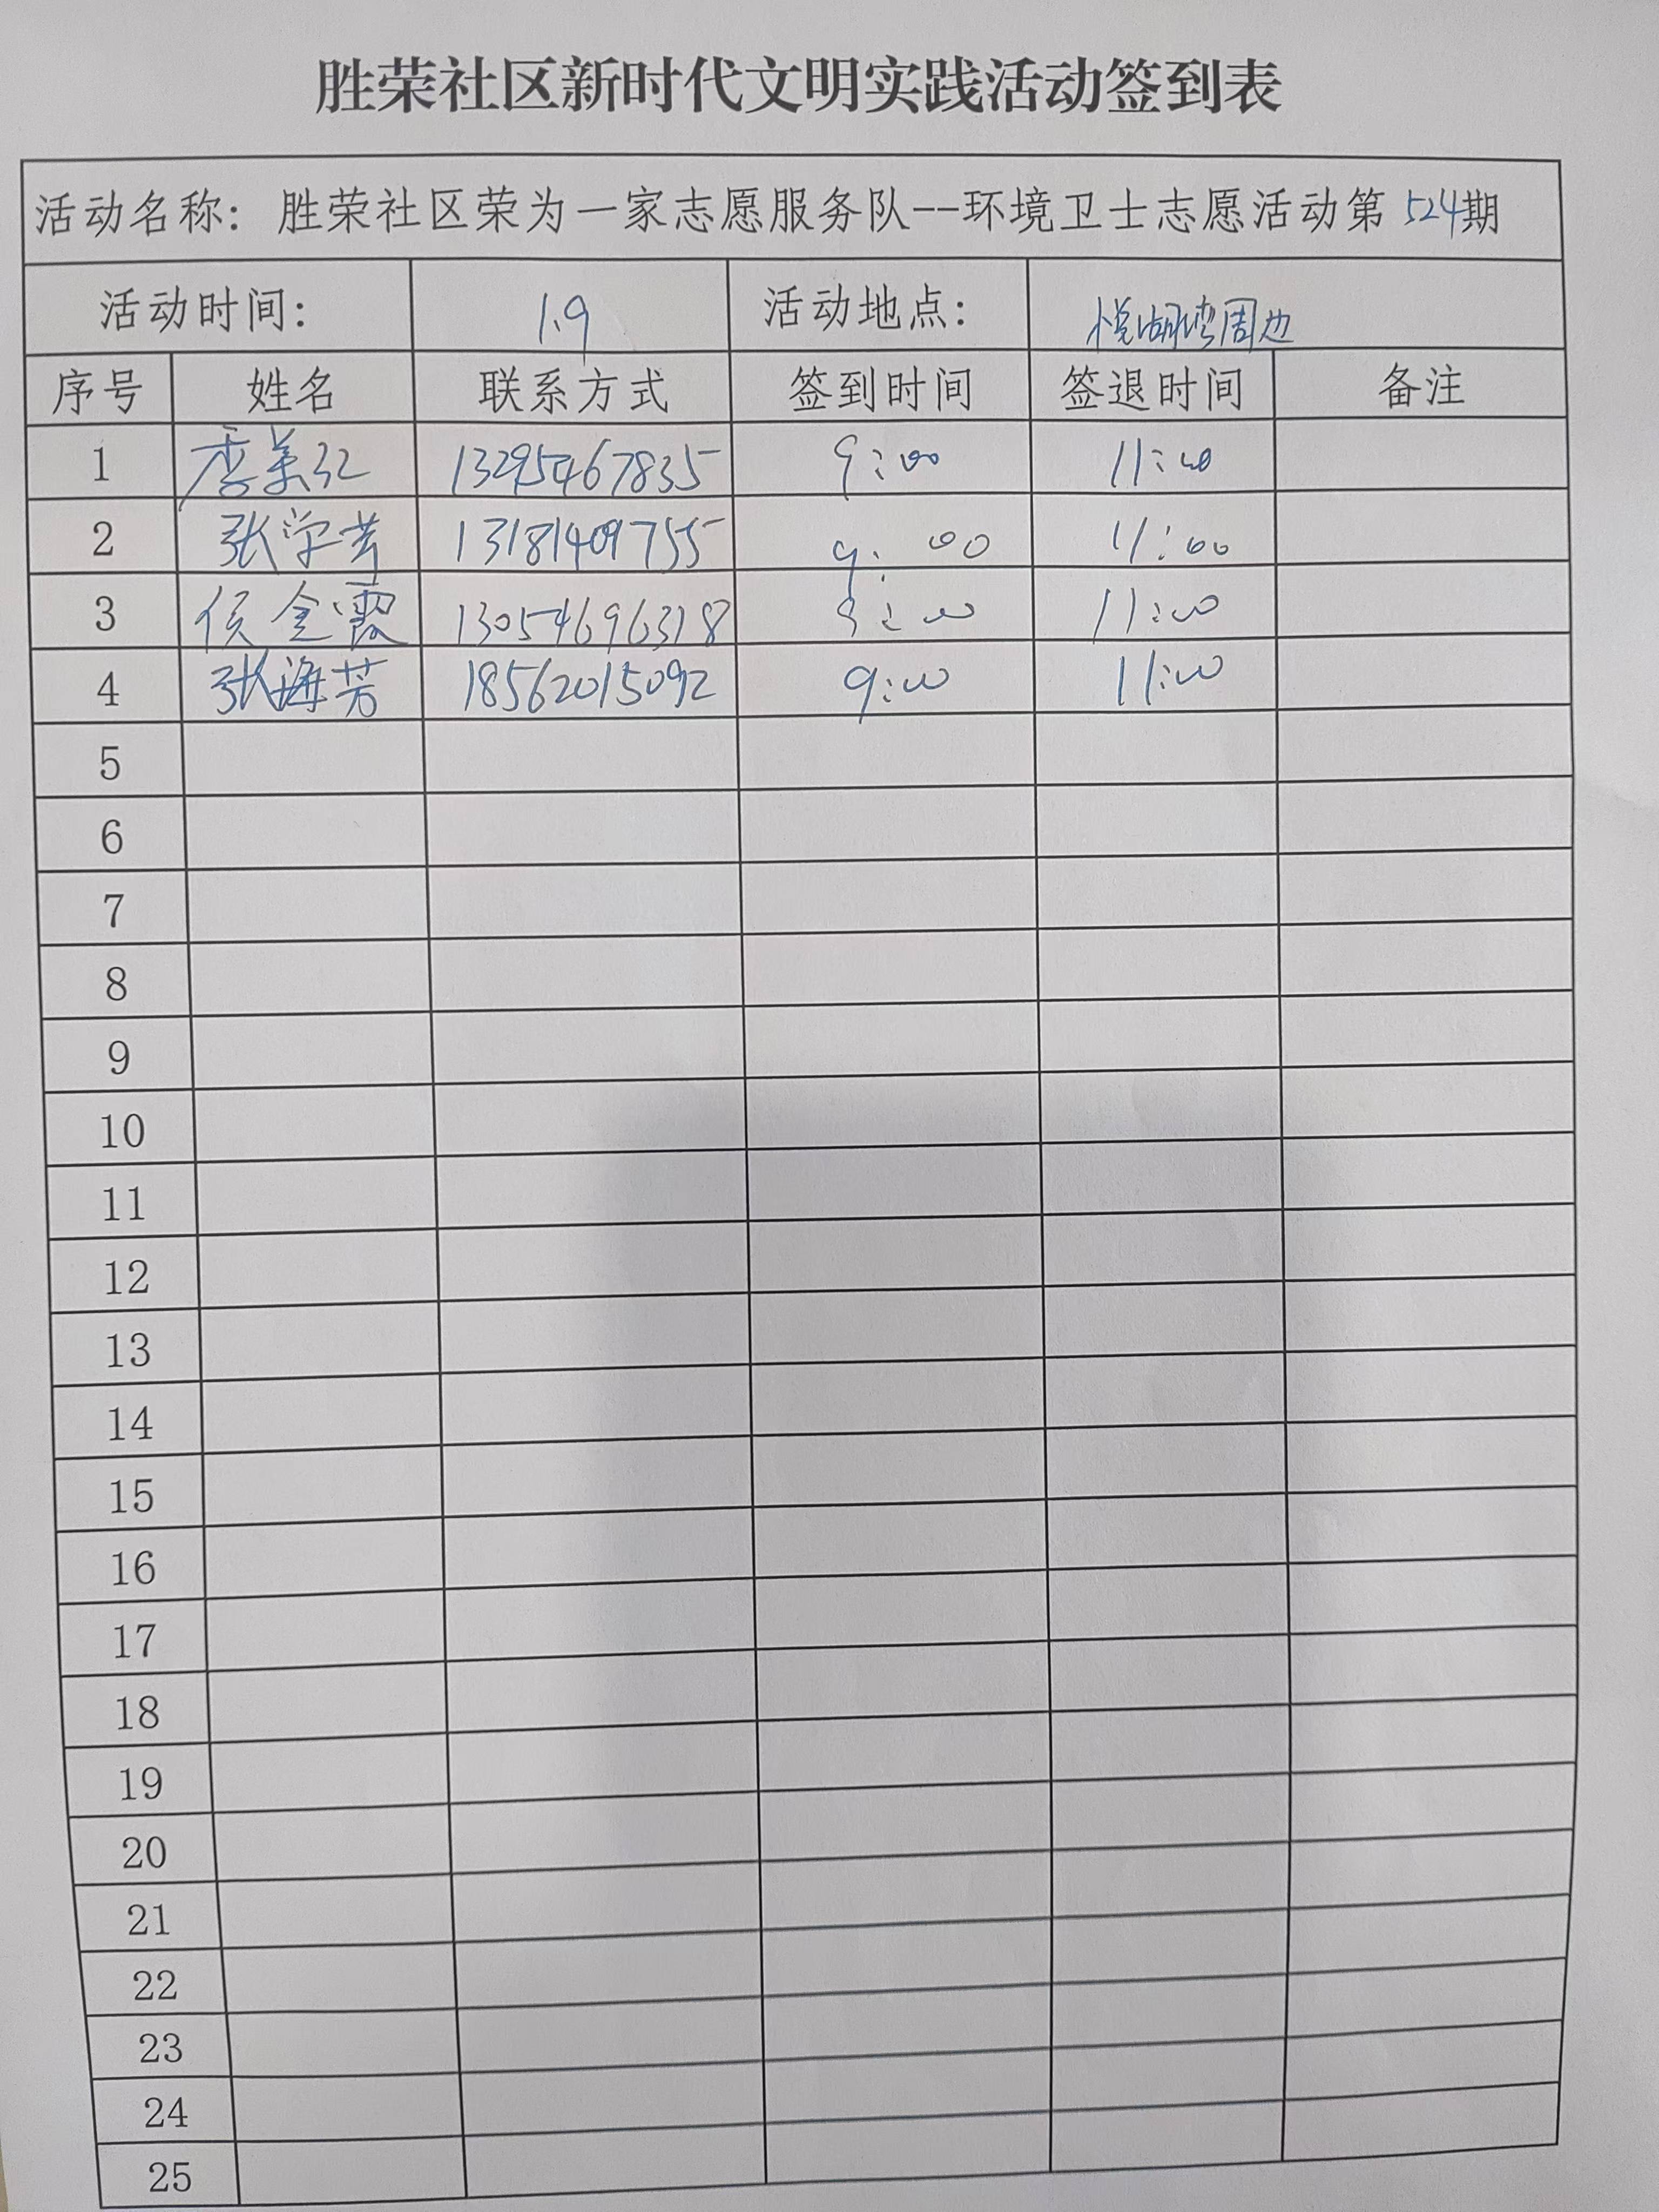 胜荣社区新时代文明实践活动签到表
活动名称: 胜荣社区荣为一家志愿服务队--环境卫士志愿活动第524期
活动时间: 1.9 活动地点: 悦湖湾周边
序号 姓名 联系方式 签到时间 签退时间 备注
1 季美红 13295467835 9:00 11:00
2 张学芳 13181409755 9:00 11:00
3 侯金霞 13054696318 9:00 11:00
4 张海芳 18562015092 9:00 11:00
5
6
7
8
9
10
11
12
13
14
15
16
17
18
19
20
21
22
23
24
25